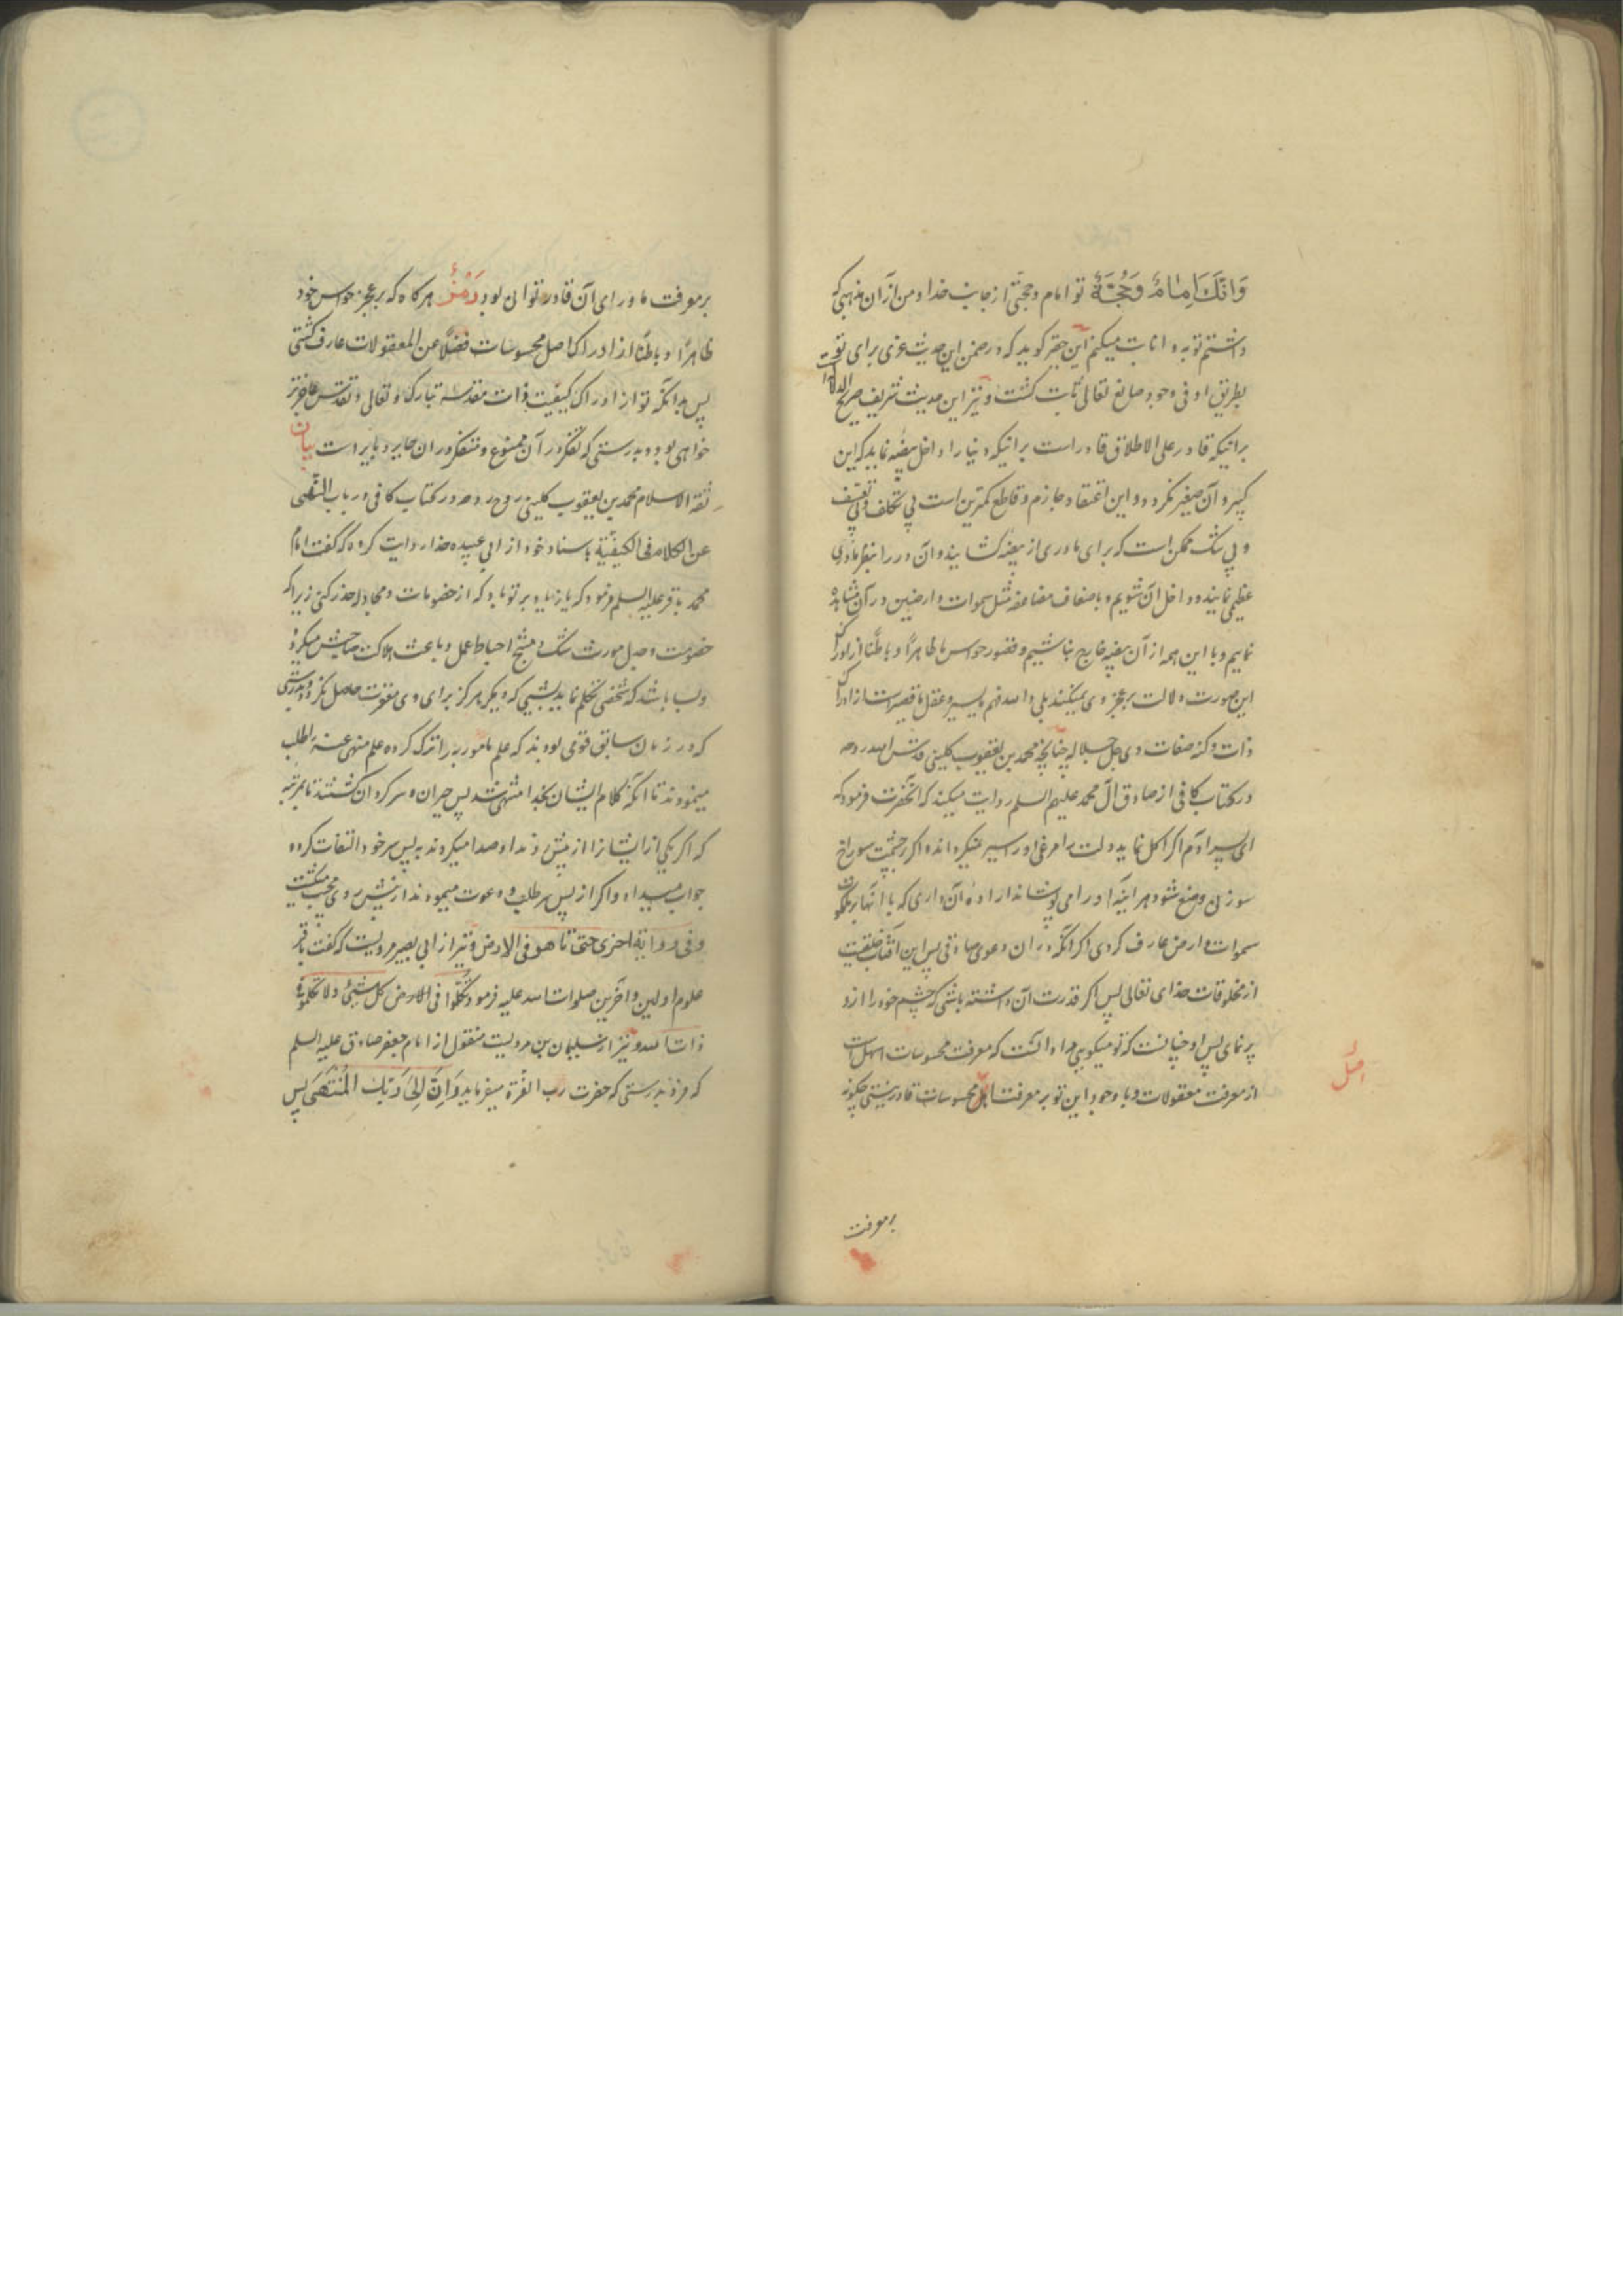 وَاَنَّكَ اِمٰامٌ وَحُجَّةٌ تو امام و حجتی از جانب خدا و من از آن مذهبی که
داشتم توبه و انابت میکنم این حقیر گوید که در ضمن این حدیث عزی برای توست
بطریق او فی وجود صانع تعالی ثابت گشت و نیز این حدیث شریف صریح الدلالة
براینکه قادر علی الاطلاق قادر است براینکه دنیا را داخل بیضه نماید که این
کبیر و آن صغیر نگردد و این اعتقاد جازم و قاطع کمترین است بی تکلف و بی تعسف
و بی شک ممکن است که برای ما دری از بیضه گشایند و آن در را بنظر ما دری
عظیم نمایند و داخل آن شویم و باضعاف مضاعفه مثل سموات و ارضین در آن مشاهده
نمایم و با این همه از آن بیضه خارج نباشیم و قصور حواس ما ظاهراً و باطناً از ادراک
این صورت دلالت بر عجز وی نمیکند بلی و الله فهم ما یسیر و عقل ما قصیر است از ادراک
ذات و کنه صفات وی جل جلاله چنانچه محمد بن یعقوب کلینی قدس الله روحه
در کتاب کافی از صادق آل محمد علیهم السلم روایت میکند که آنحضرت فرمود که
ای پسر آدم اگر اکل نماید دلت را مرغی او را سیر نمیگرداند و اگر بر چشمت سوراخ
سوزنی وضع شود هر آینه او را می پوشاند اراده آن داری که با آنها بر ملکوت
سموات و ارض عارف گردی اگر آنکه در آن دعوی صادقی پس این آفتاب خلقیست
از مخلوقات خدای تعالی پس اگر قدرت آن داشته باشی که چشم خود را از او
پر نمای پس او چنانست که تو میکویی مراد آنست که معرفت محسوسات اسهل است
از معرفت معقولات و با وجود این تو بر معرفت اصل محسوسات قادر نیستی چکونه
اصل
بر معرفت
بر معرفت ماورای آن قادر توانی بود رَمْزٌ هرگاه که بر عجز حواس خود
ظاهراً و باطناً از ادراک اصل محسوسات فضلاً عن المعقولات عارف گشتی
پس بدانکه تو از ادراک کیفیت ذات مقدسه تبارک و تعالی و تقدس عاجزتر
خواهی بود و بدرستی که تفکر در آن ممنوع و متفکر در آن حایر و بایر است بیان
ثقة الاسلام محمد بن یعقوب کلینی روح روحه در کتاب کافی در باب النّهی
عن الکلام فی الکیفیّة باسناد خود از ابی عبیده حذا روایت کرده که گفت امام
محمد باقر علیه السلم فرمود که یا زیاد بر تو باد که از خصومات و مجادله حذر کنی زیرا که
خصومت و جدل مورث شک و منتج احباط عمل و باعث هلاکت صاحبش میگردد
و بسا باشد که شخصی تکلم نماید بشیئی که دیگر هرگز برای وی مغفرت حاصل نگردد و بدرستی
که در زمان سابق قومی بودند که علم مامور به را ترک کرده علم منهی عنه را طلب
مینمودند تا آنکه کلام ایشان بخدا منتهی شد پس حیران و سرگردان گشتند تا بمرتبه
که اگر یکی از ایشانرا از پیش رو ندا و صدا میکردند به پس سر خود التفات کرده
جواب میداد و اگر از پس سر طلب و دعوت مینمودند از پیش روی مجیب میگشت
و فی روایة اخری حتی تاهوا فی الارض و نیز از ابی بصیر مرویست که گفت باقر
علوم اولین و آخرین صلوات الله علیه فرمود تکلّموا فی الارض کل شیئ و لا تکلموا فی
ذات الله و نیز از سلیمان بن مرویست منقول از امام جعفر صادق علیه السلم
که فرمود بدرستی که حضرت رب العزة میفرماید وَاَنَّ اِلىٰ رَبِّكَ الْمُنْتَهَىٰ پس